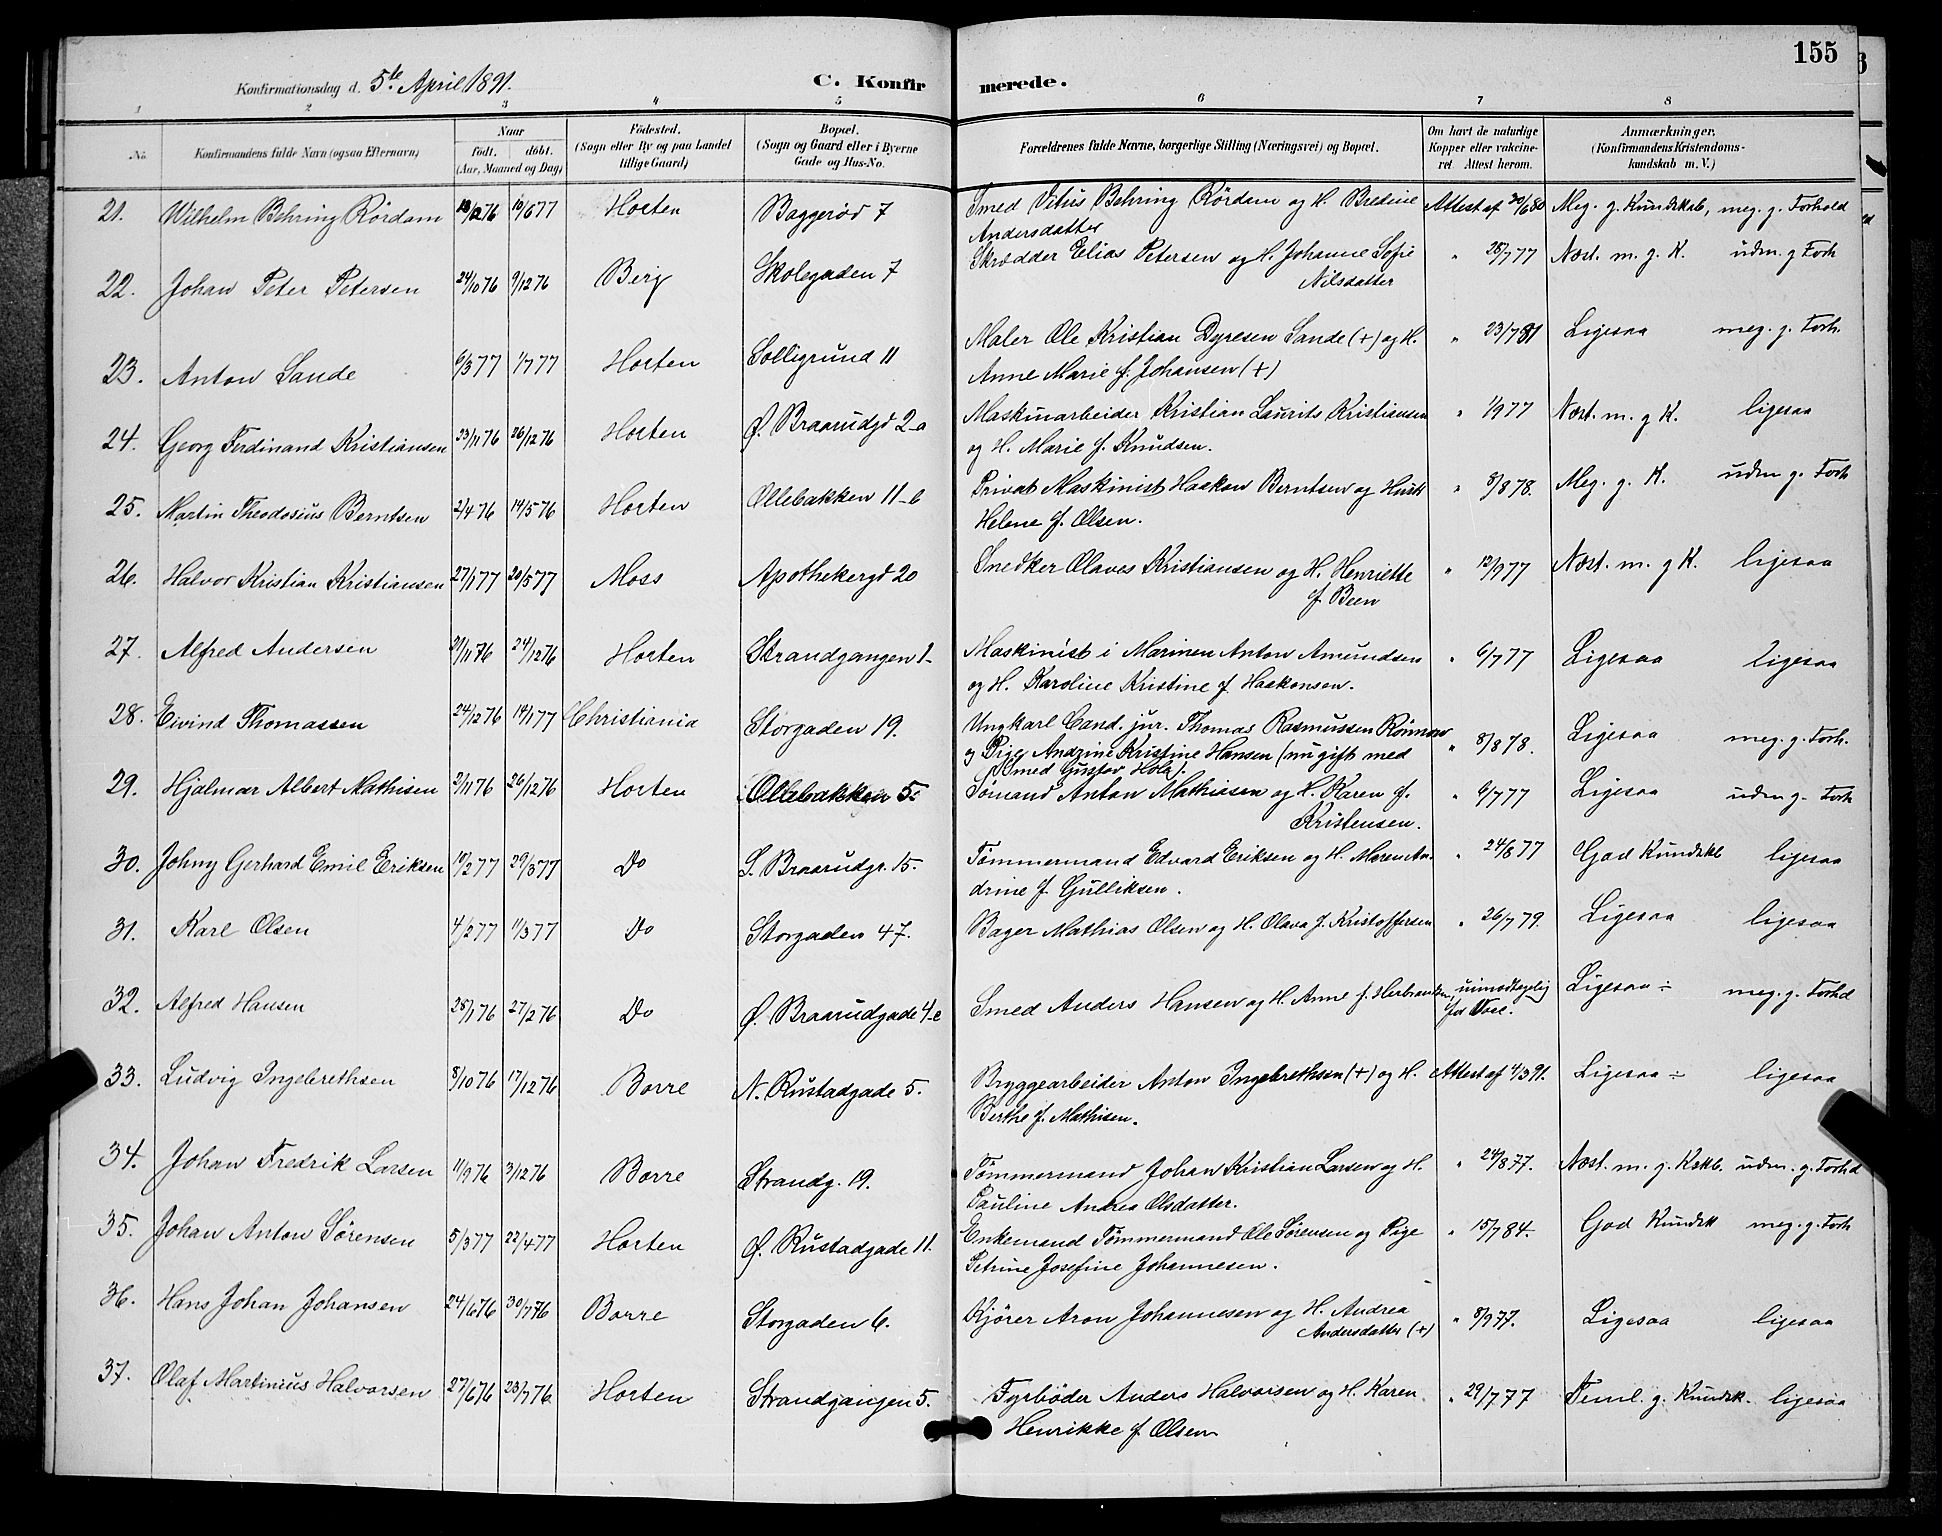 155
Konfirmationsdag d. 5te April 1891.
C. Konfirmerede.
1 2 3 4 5 6 7 8
No. Konfirmandens fulde Navn (ogsaa Efternavn) Naar født. døbt. (Aar, Maaned og Dag) Fødested. (Sogn eller By og paa Landet tillige Gaard) Bopæl. (Sogn og Gaard eller i Byerne Gade og Hus-No. Forældrenes fulde Navne, borgerlige Stilling (Næringsvei) og Bopæl. Om havt de naturlige Kopper eller vakcineret. Attest herom. Anmærkninger. (Konfirmandens Kristendomskundskab m. V.)
21. Wilhelm Behring Rördam 12/6 77 Horten Baggerød 7 Smed Vitus Behring Rördam og H. Bredine Attest af 30/6 80 Meg. g. Kundskab, meg. g. Forhold
Andersdatter
22. Johan Peter Petersen 24/10 76 9/12 76 Berg Skolegaden 7 Skrædder Elias Petersen og H. Johanne Sofie " 28/7 77 Næst. m. g. K. udm. g Forh
Nilsdatter
23. Anton Sande 6/3 77 1/7 77 Horten Solligrund 11 Maler Ole Kristian Dyresen Sande (+) og H. " 23/7 81 Ligesaa meg. g. Forh.
Anne Marie f. Johansen (+)
24. Georg Ferdinand Kristiansen 23/11 76 26/12 76 Horten Ø. Braarudgd 2-a Maskinarbeider Kristian Laurits Kristiansen " 1/9 77 Næst. m. g K. ligesaa
og H. Marie f. Knudsen.
25. Martin Theodosius Berntsen 2/4 76 14/5 76 Horten Ollebakken 11-b Privat Maskinist Haakon Berntsen og Hust " 8/8 78. Meg. g. K. udm g. Forh
Helene f. Olsen.
26. Halvor Kristian Kristiansen 27/1 77 20/5 77 Moss Apothekergd 20 Snedker Olaves Kristiansen og H. Henriette " 12/9 77 Næst. m. g K. ligesaa
f. Been
27. Alfred Andersen 21/11 76 24/12 76 Horten Strandgangen 1- Maskinist i Marinen Anton Amundsen " 6/7 77 Ligesaa ligesaa
og H. Karoline Kristine f Haakonsen.
28. Eivind Thomassen 24/12 76 14/1 77 Christiania Storgaden 19. Ungkarl Cand. jur. Thomas Rasmussen Rönnow " 8/8 78. Ligesaa meg. g. Forh.
og Pige Andzine Kristine Hansen (nu gift med
Smed Gustav Holz).
29. Hjalmar Albert Mathisen 2/11 76 26/12 76 Horten Ollebakken 5c Sømand Anton Mathiasen og H. Karen f. " 6/7 77 Ligesaa udm g. Forh
Kristensen.
30. Johny Gerhard Emil Eriksen 14/2 77 29/3 77 Do S. Braarudgr. 15. Tømmermand Edvard Eriksen og H. Maren An- " 24/8 77 God Kundskb ligesaa
drine f. Gulliksen.
31. Karl Olsen 4/2 77 11/3 77 Do Storgaden 47. Bager Mathias Olsen og H. Olava f. Kristoffersen " 26/7 79. Ligesaa ligesaa
32. Alfred Hansen 28/1 76 27/2 76 Do Ø. Braarudgade 4-e Smed Anders Hansen og H. Anne f. Herbrandsen, uimodtagelig Ligesaa ÷ meg. g. Forhd
for Vac.
33. Ludvig Ingebrethsen 8/10 76 17/12 76 Borre N. Rustadgade 5. Bryggearbeider Anton Ingebrethsen (+) og H. Attest af 4/3 91. Ligesaa ÷ ligesaa
Berthe f. Mathisen.
34. Johan Fredrik Larsen 11/9 76 3/12 76 Borre Strandg. 19. Tømmermand Johan Kristian Larsen og H. " 24/8 77. Næst. m. g. Kskb. udm. g. Forhd
Pauline Andrea Olsdatter.
35. Johan Anton Sørensen 5/3 77 22/4 77 Horten Ø. Rustadgade 11. Enkemand Tømmermand Ole Sørensen og Pige " 15/7 84. God Kundsk meg. g. Forh
Petrine Josefine Johannesen.
36. Hans Johan Johansen 24/6 76 30/7 76 Borre Storgaden 6. Kjører Aron Johannesen og H. Andrea " 8/9 77. Ligesaa ligesaa
Andersdatter (+)
37. Olaf Martinius Halvorsen 27/6 76 23/7 76 Horten Strandgangen 5. Fyrbøder Anders Halvorsen og H. Karen " 29/7 77 Teml. g. Kundsk. ligesaa
Henrikke f Olsen